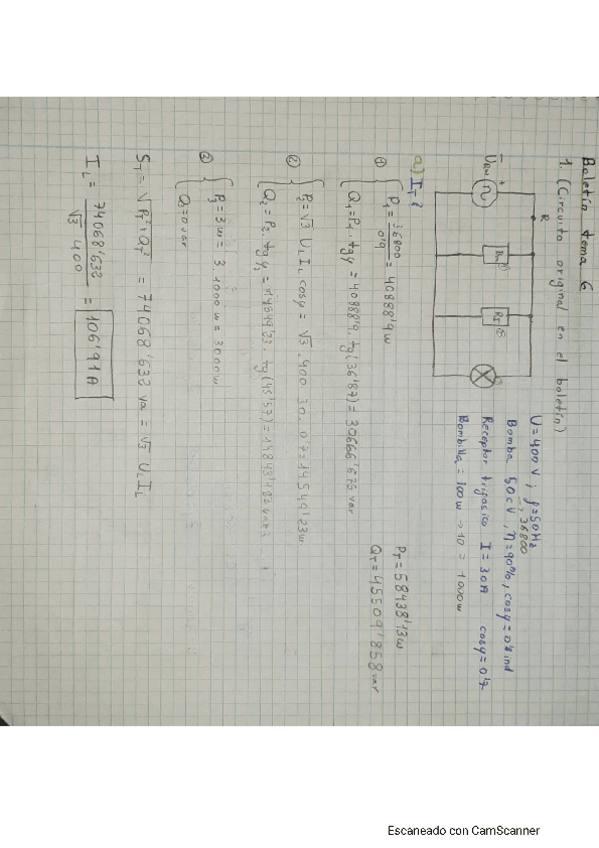 Boletín tema 6
1. (Circuito original en el boletín)
U = 400 V ; f = 50Hz
36800
Bomba 50CV, η=90%, cosφ=0'8 ind
Receptor trifásico I = 30A cosφ=0'7
Bombilla = 100w → 10 = 1000w
R
a) I_T?
① P₁ = 36800/0'9 = 40888'9 w
Q₁ = P₁ · tgφ = 40888'9 · tg(36'87) = 30666'675 var
P_T = 58438'13w
Q_T = 45509'858 var
② P₂ = √3 U_L I_L cosφ = √3 · 400 · 30 · 0'7 = 14549'23w
Q₂ = P₂ · tgφ₂ = 14549'23 · tg(45'57) = 14843'183 var
③ P₃ = 3w = 3 · 1000w = 3000w
Q₃ = 0 var
S_T = √P_T² + Q_T² = 74068'633 va = √3 U_L I_L
I_L = 74068'633/√3 · 400 = 106'91A
Escaneado con CamScanner